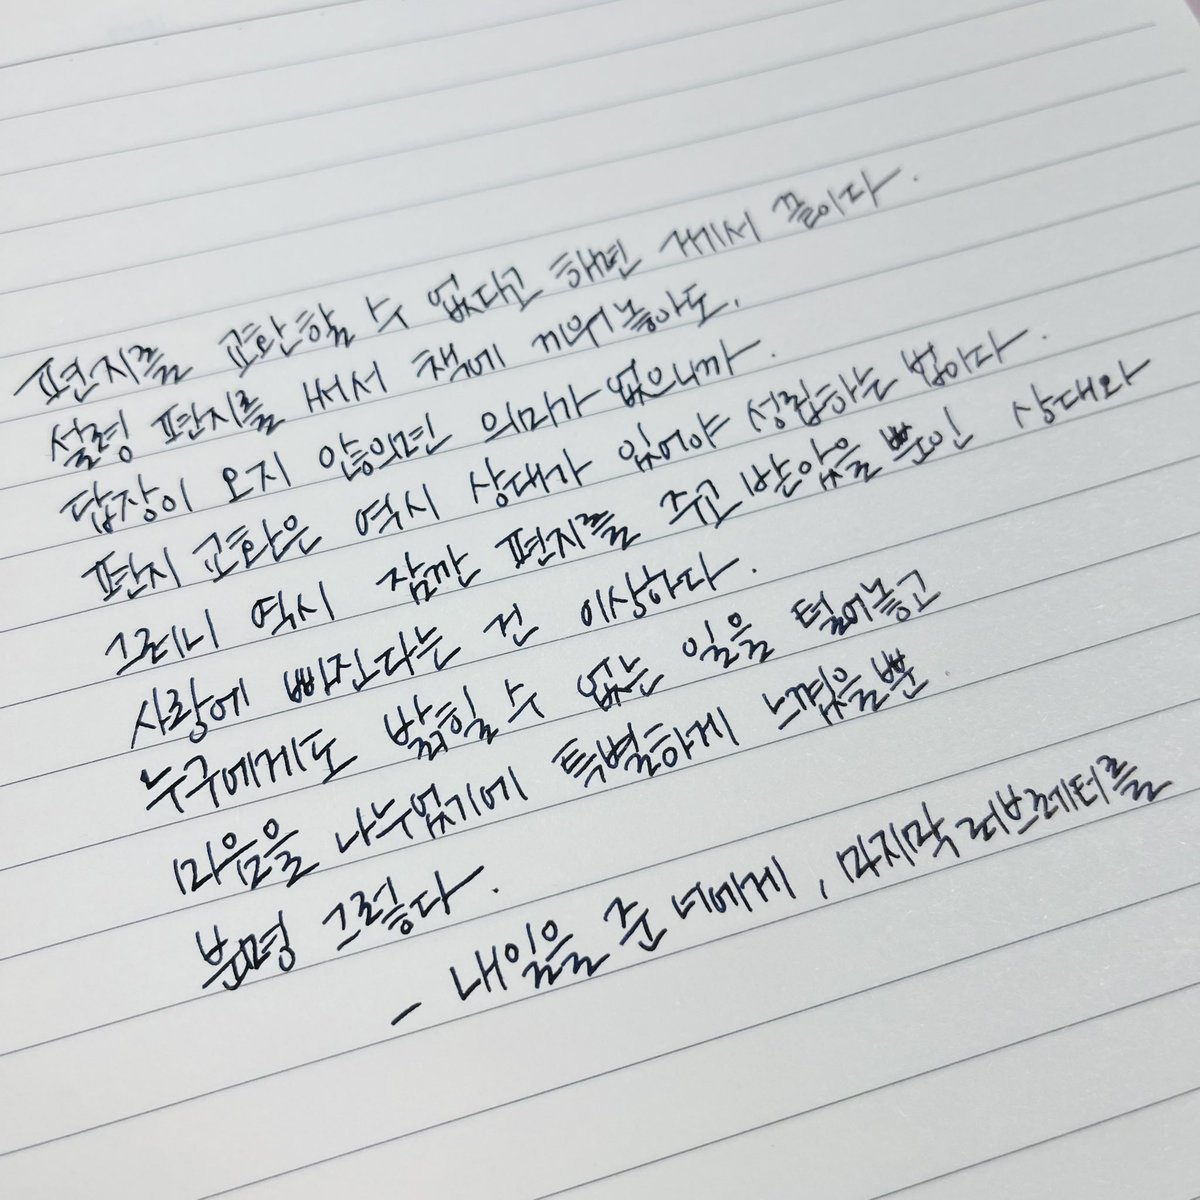 편지를 교환할 수 없다고 하면 게서 끝이다.
설령 편지를 써서 책에 끼워놓아도.
답장이 오지 않으면 의미가 없으니까.
편지 교환은 역시 상대가 있어야 성립하는 법이다.
그러니 역시 잠깐 편지를 주고 받았을 뿐인 상대와
사랑에 빠진다는 건 이상하다.
누구에게도 밝힐 수 없는 일을 털어놓고
마음을 나누었기에 특별하게 느꼈을 뿐.
분명 그렇다.
- 내일을 준 너에게, 마지막 러브레터를